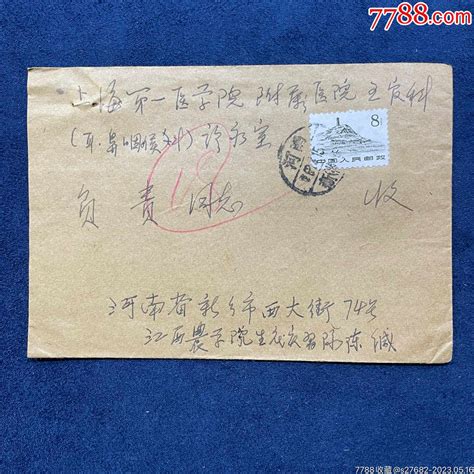 7788.com
上海第一医学院附属医院五官科
(耳·鼻咽喉科)诊永室
1 8
中国人民邮政
河南
18
负责同志 收
河南省新乡市西大街74号
江西农学院生
陈缄
7788收藏@s27682-2023.05.16